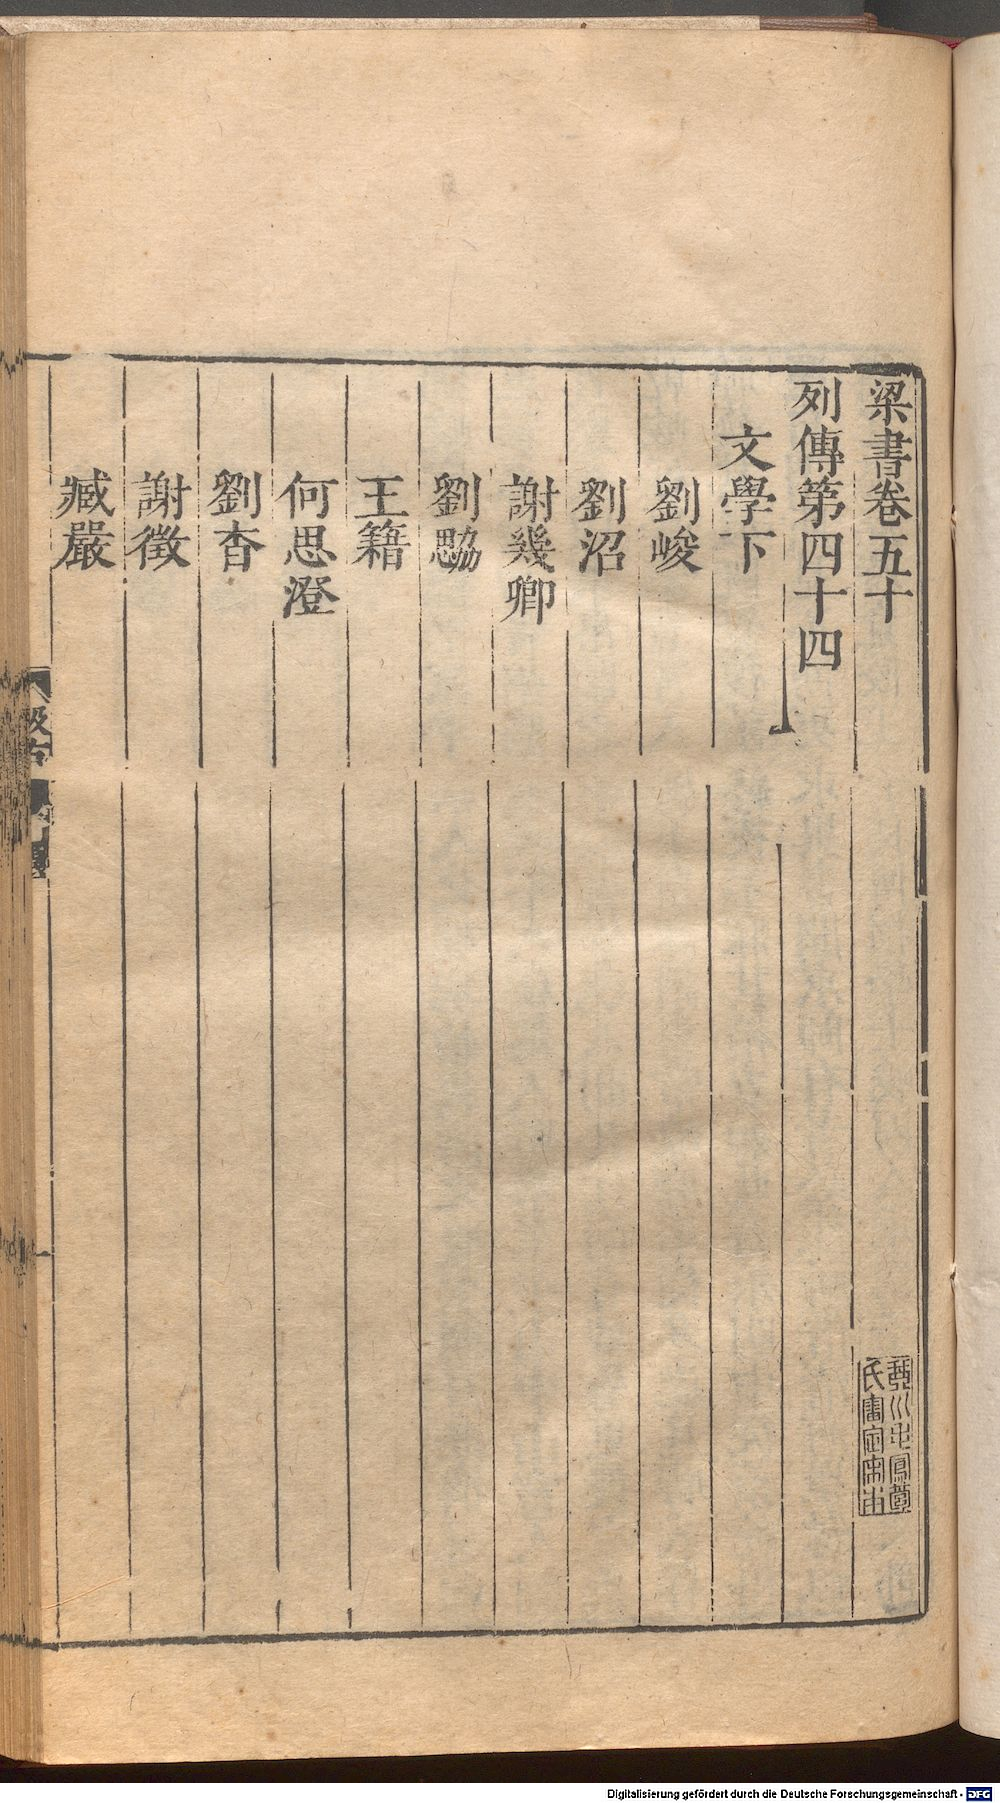 梁書卷五十
列傳第四十四
文學下
劉峻
劉沼
謝幾卿
劉勰
王籍
何思澄
劉杳
謝徵
臧嚴
汲古
Digitalisierung gefördert durch die Deutsche Forschungsgemeinschaft - DFG